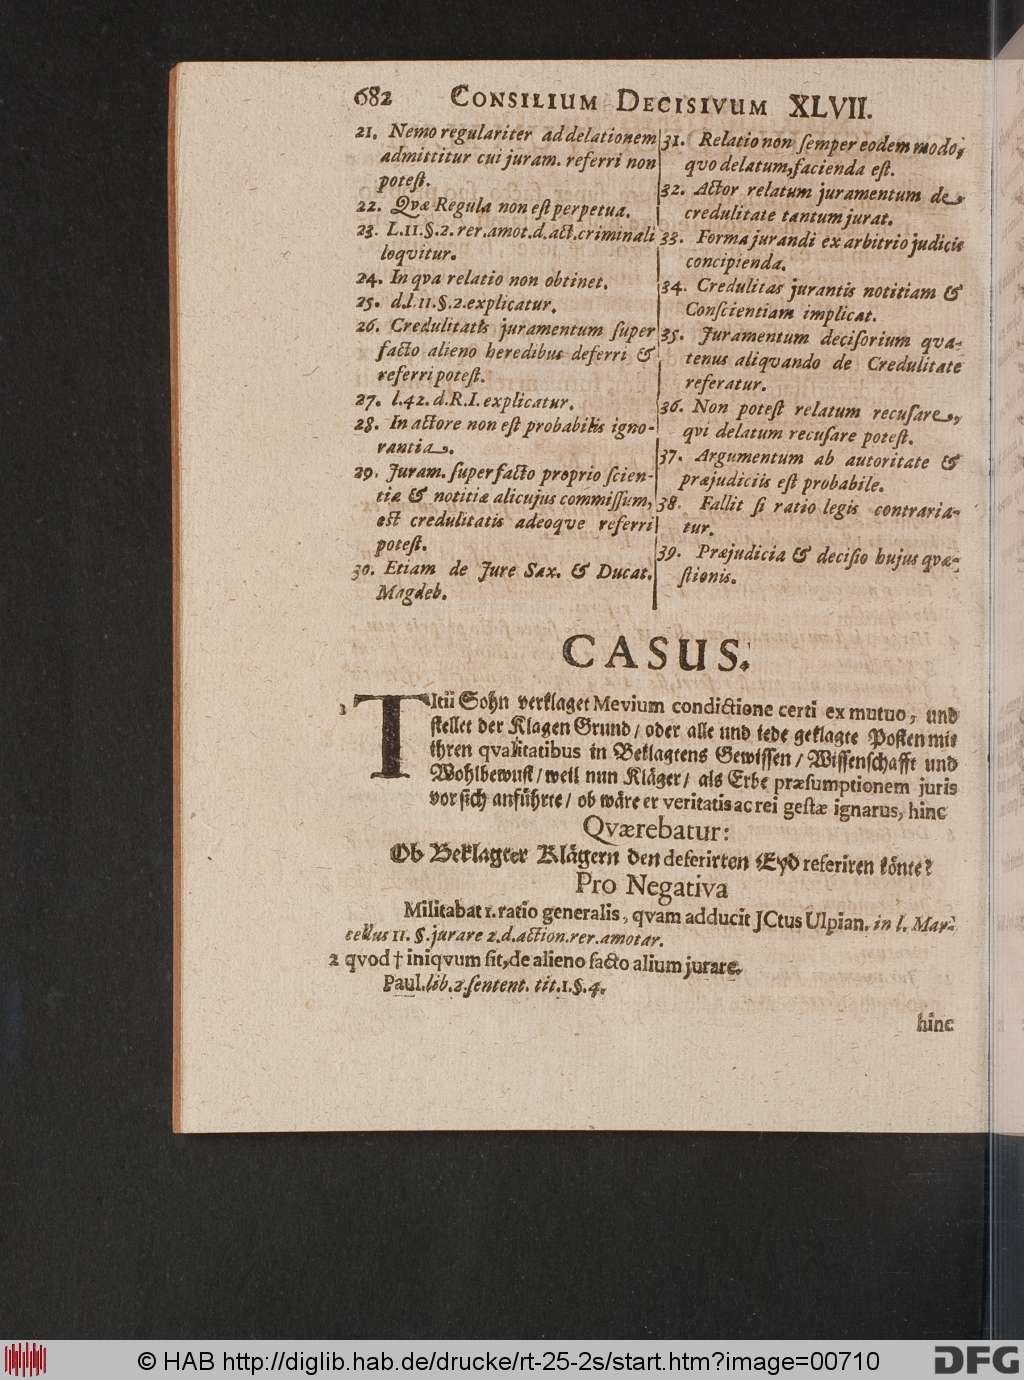 682 CONSILIUM DECISIVUM XLVII.
21. Nemo regulariter ad delationem
admittitur cui juram. referri non
potest.
22. Qvæ Regula non est perpetua.
23. L.11.§.2.rer.amot.d.act.criminali
loqvitur.
24. In qva relatio non obtinet.
25. d.l.11.§.2.explicatur.
26. Credulitatis juramentum super
facto alieno heredibus deferri &
referri potest.
27. l.42.d.R.I.explicatur.
28. In actore non est probabilis igno-
rantia.
29. Juram. super facto proprio scien-
tiæ & notitiæ alicujus commissum,
est credulitatis adeoqve referri
potest.
30. Etiam de Jure Sax. & Ducat.
Magdeb.
31. Relatio non semper eodem modo,
qvo delatum, facienda est.
32. Actor relatum juramentum de
credulitate tantum jurat.
33. Forma jurandi ex arbitrio judicis
concipienda.
34. Credulitas jurantis notitiam &
Conscientiam implicat.
35. Juramentum decisorium qva-
tenus aliqvando de Credulitate
referatur.
36. Non potest relatum recusare,
qvi delatum recusare potest.
37. Argumentum ab autoritate &
præjudiciis est probabile.
38. Fallit si ratio legis contraria-
tur.
39. Præjudicia & decisio hujus qvæ-
stionis.
CASUS.
1 TItii Sohn verklaget Mevium condictione certi ex mutuo, und
stellet der Klagen Grund/ oder alle und iede geklagte Posten mit
ihren qvalitatibus in Beklagtens Gewissen/ Wissenschafft und
Wohlbewust/ weil nun Kläger/ als Erbe præsumptionem juris
vor sich anführte/ ob wäre er veritatis ac rei gestæ ignarus, hinc
Qværebatur:
Ob Beklagter Klägern den deferirten Eyd referiren könte?
Pro Negativa
Militabat 1. ratio generalis, qvam adducit JCtus Ulpian. in l. Mar-
cellus 11. §. jurare 2.d.action.rer.amotar.
2 qvod † iniqvum sit, de alieno facto alium jurare.
Paul.lib.2.sentent. tit.1.§.4.
hinc
© HAB http://diglib.hab.de/drucke/rt-25-2s/start.htm?image=00710
DFG